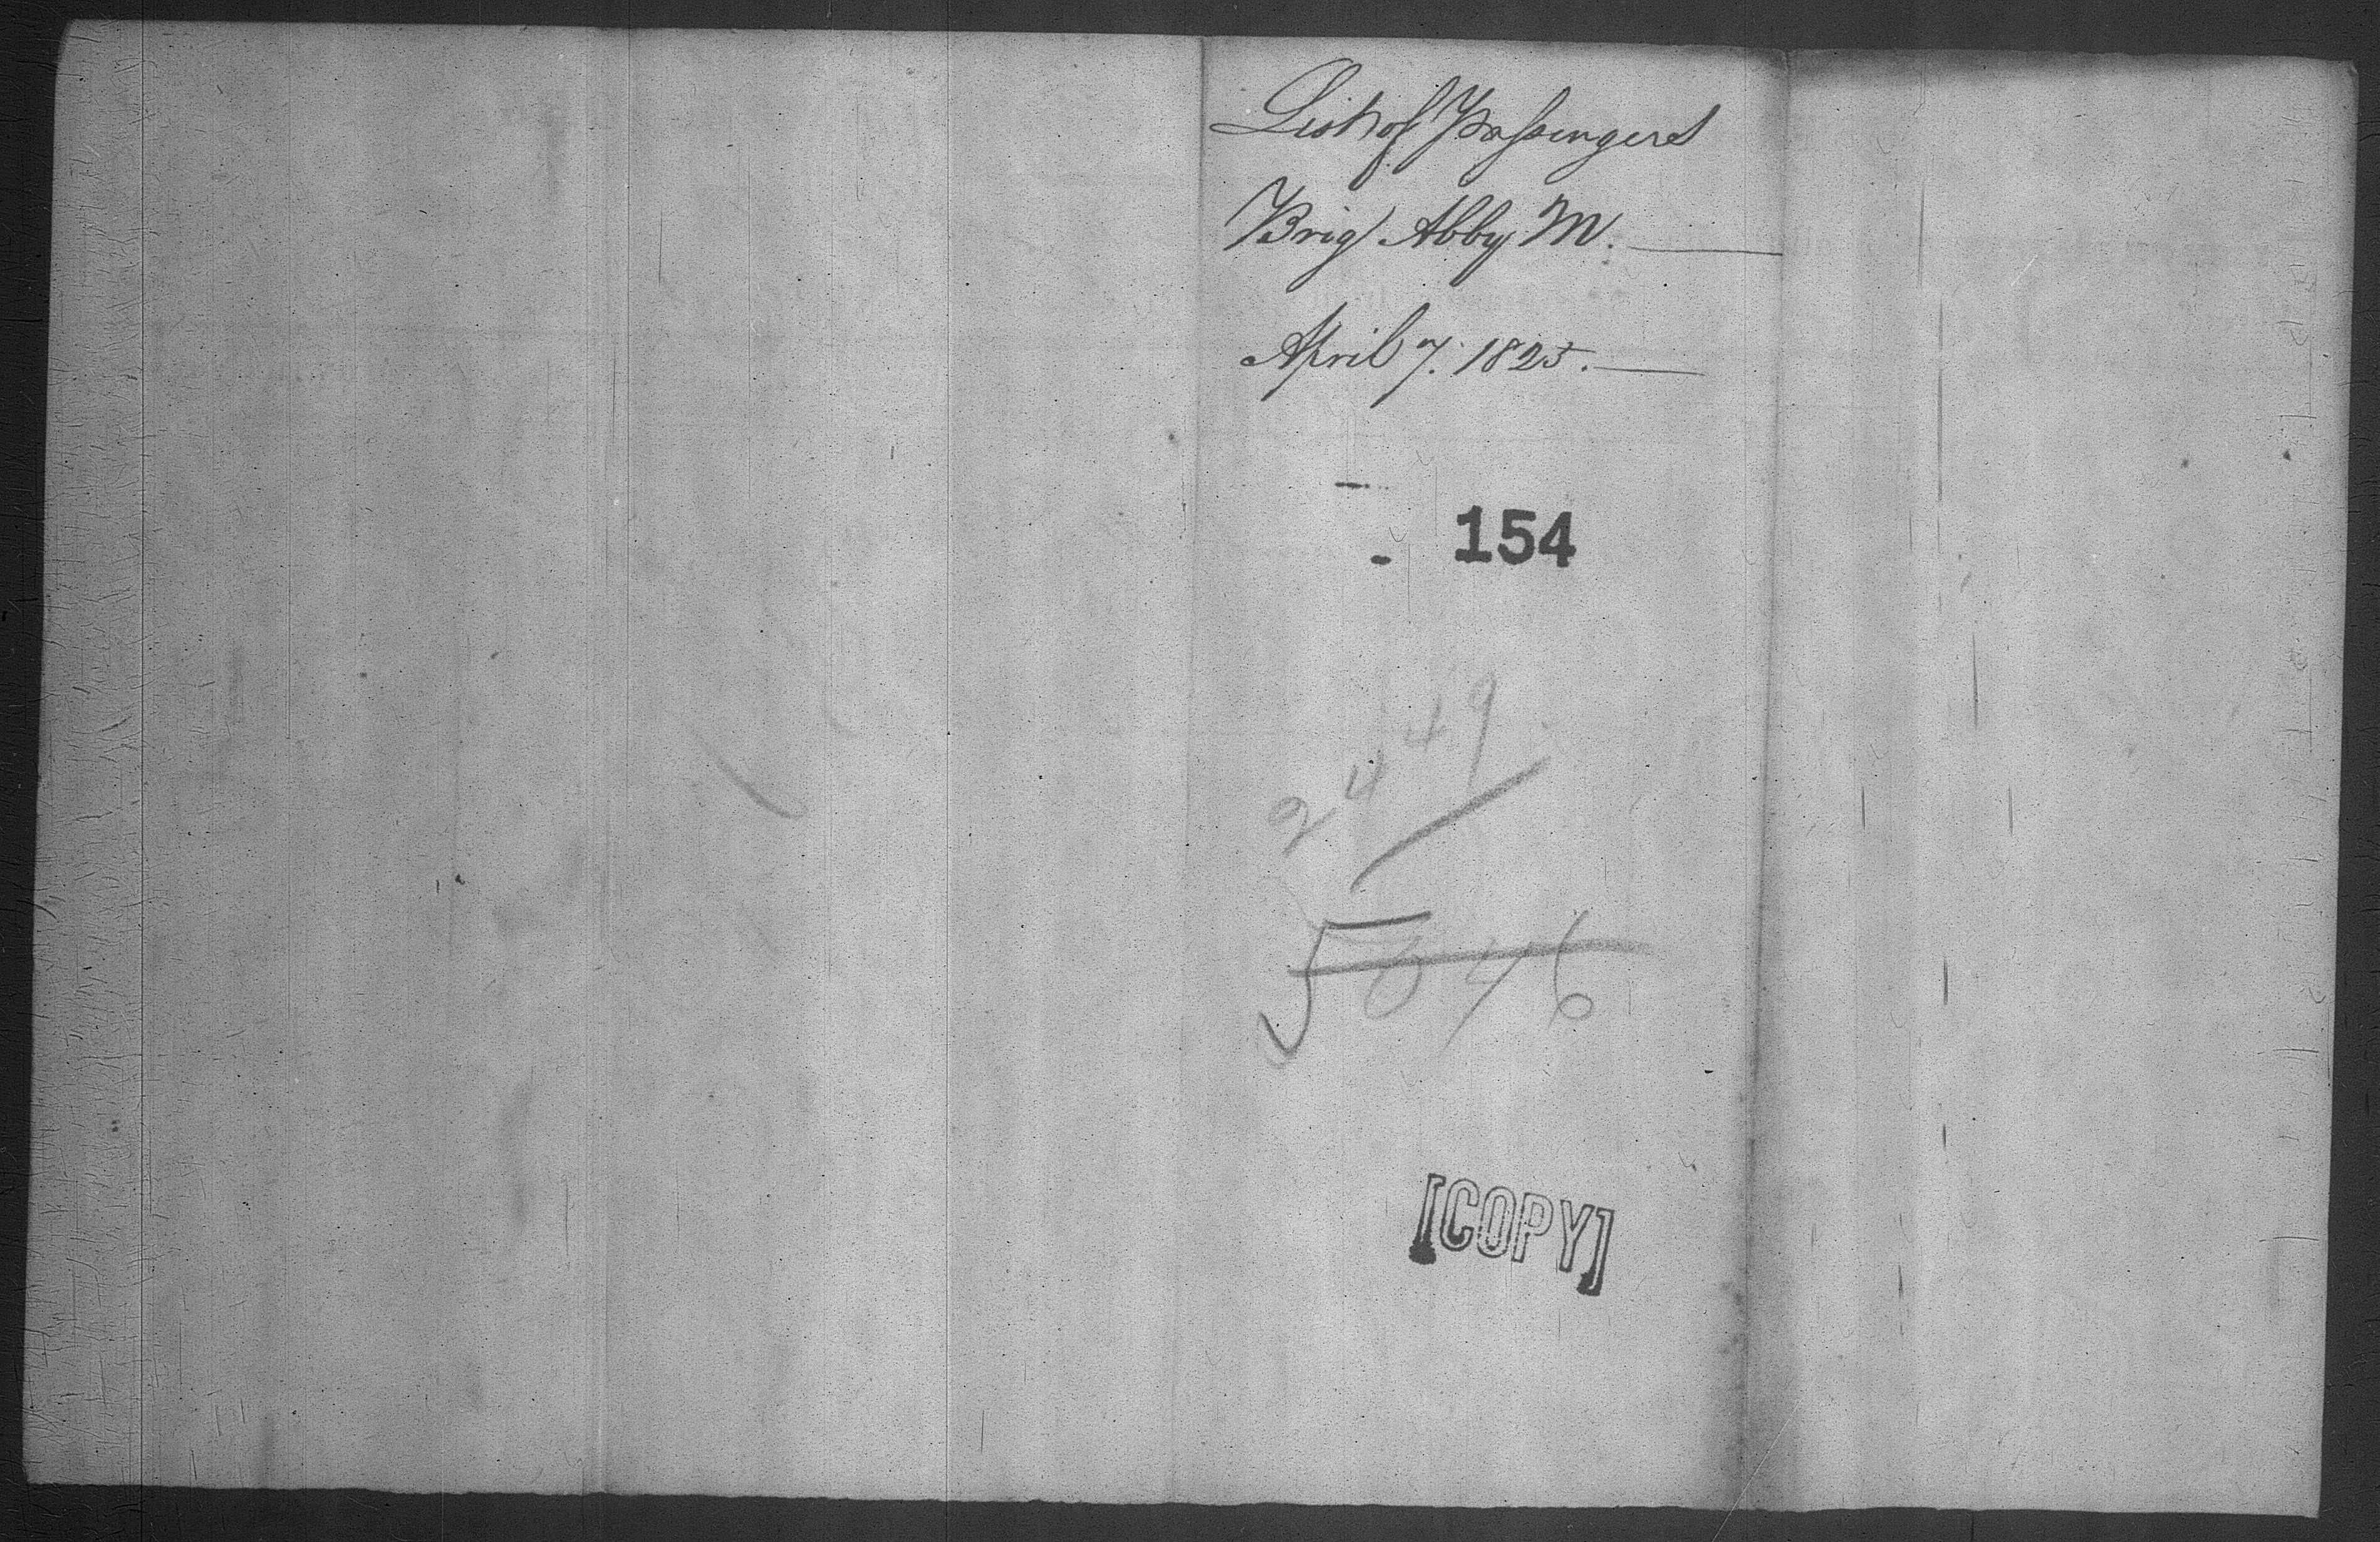 List of Passengers
Brig Abby M.
April 7. 1825.
154
2449
5646
[COPY]